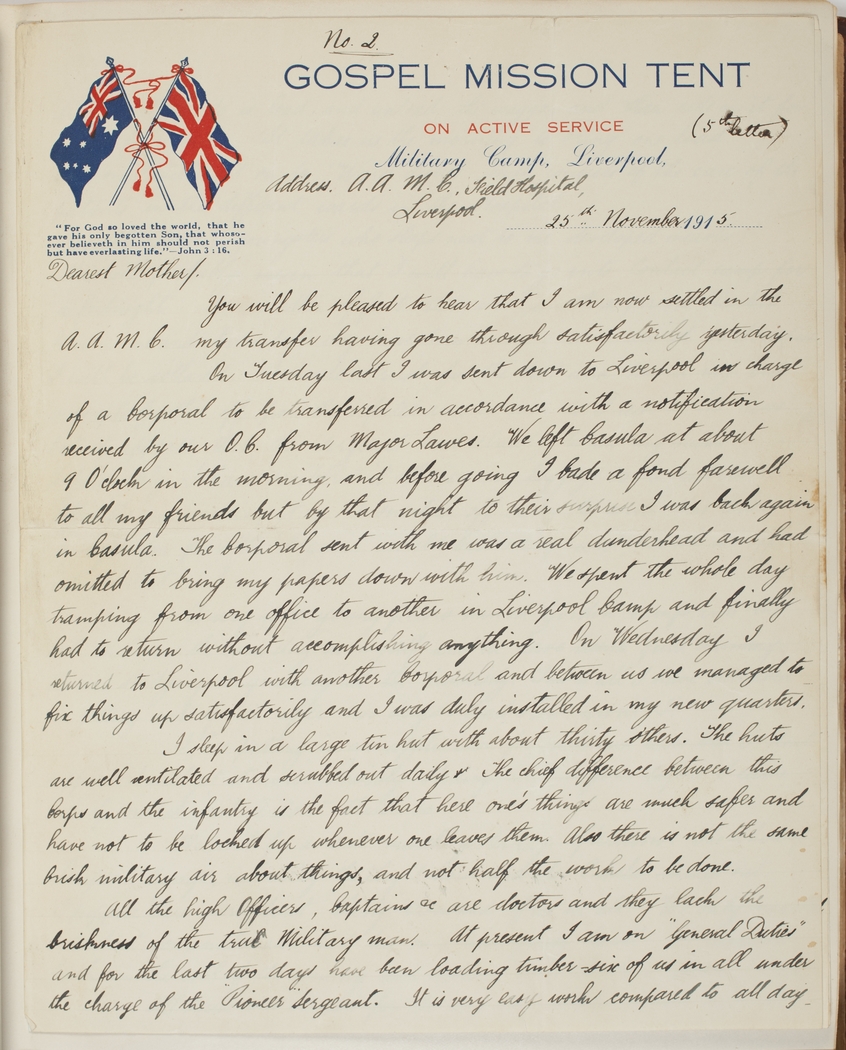 No. 2.
GOSPEL MISSION TENT
ON ACTIVE SERVICE
(5th letter)
Military Camp, Liverpool,
Address. A. A. M. C., Field Hospital,
Liverpool.
25th November 1915.
"For God so loved the world, that he
gave his only begotten Son, that whoso-
ever believeth in him should not perish
but have everlasting life."—John 3 : 16.
Dearest Mother/.
You will be pleased to hear that I am now settled in the
A. A. M. C. my transfer having gone through satisfactorily yesterday.
On Tuesday last I was sent down to Liverpool in charge
of a Corporal to be transferred in accordance with a notification
received by our O.C. from Major Lawes. We left Casula at about
9 O'clock in the morning, and before going I bade a fond farewell
to all my friends but by that night to their surprise I was back again
in Casula. The Corporal sent with me was a real dunderhead and had
omitted to bring my papers down with him. We spent the whole day
tramping from one office to another in Liverpool Camp and finally
had to return without accomplishing anything. On Wednesday I
returned to Liverpool with another Corporal and between us we managed to
fix things up satisfactorily and I was duly installed in my new quarters.
I sleep in a large tin hut with about thirty others. The huts
are well ventilated and scrubbed out daily & The chief difference between this
Corps and the infantry is the fact that here one's things are much safer and
have not to be locked up whenever one leaves them. Also there is not the same
brisk military air about things, and not half the work to be done.
All the high Officers, Captains &c are doctors and they lack the
briskness of the true Military man. At present I am on "General Duties"
and for the last two days have been loading timber - six of us in all under
the charge of the "Pioneer" Sergeant. It is very easy work compared to all day